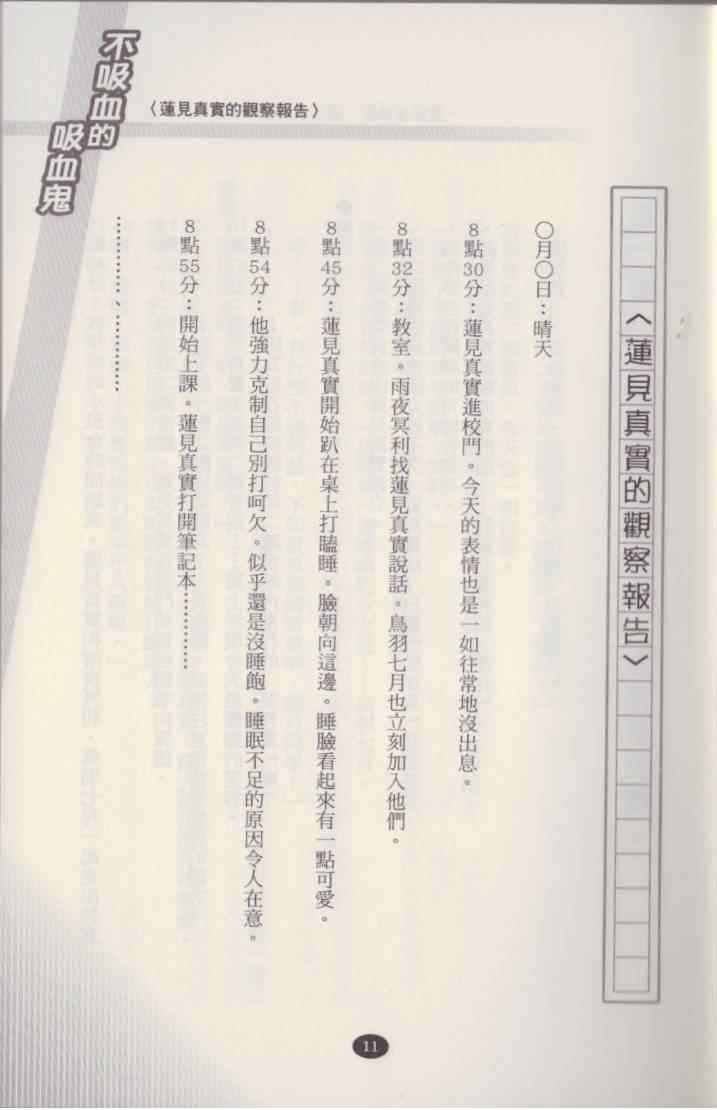 不吸血的
吸血鬼
〈蓮見真實的觀察報告〉
〈蓮見真實的觀察報告〉
〇月〇日：晴天
8點30分：蓮見真實進校門。今天的表情也是一如往常地沒出息。
8點32分：教室。雨夜冥利找蓮見真實說話。鳥羽七月也立刻加入他們。
8點45分：蓮見真實開始趴在桌上打瞌睡。臉朝向這邊。睡臉看起來有一點可愛。
8點54分：他強力克制自己別打呵欠。似乎還是沒睡飽。睡眠不足的原因令人在意。
8點55分：開始上課。蓮見真實打開筆記本…………
…………、…………
11